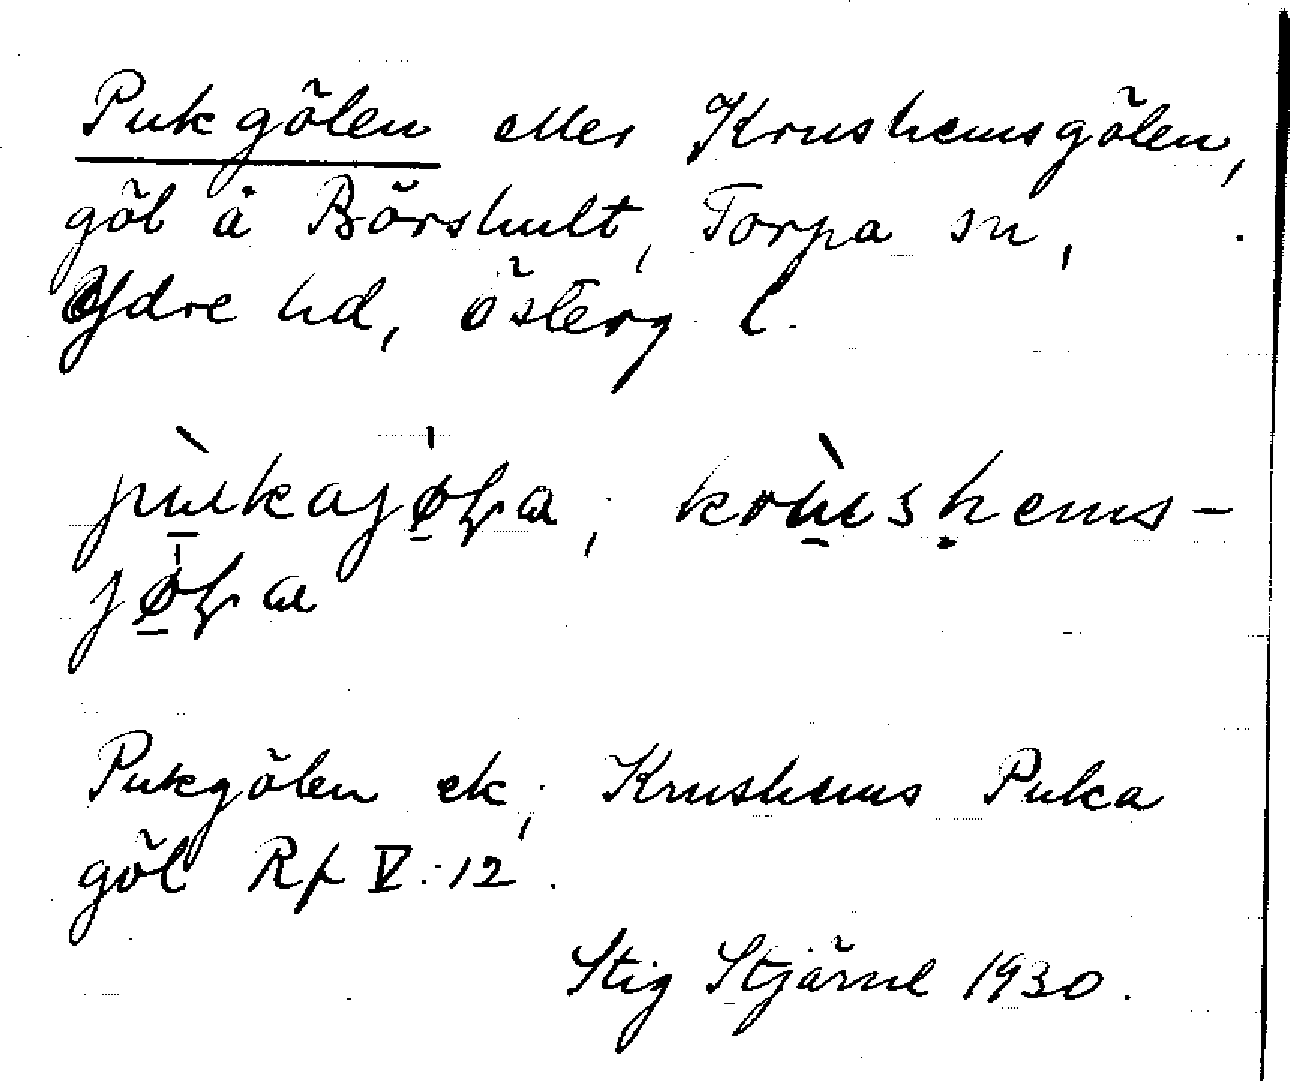 Pukgölen eller Krushemsgölen,
göl å Börshult, Torpa sn,
Ydre hd, Österg l.
pùkajøɽa; krùshems-
jøɽa
Pukgölen ek; Krushems Puka
göl Rf V:12.
Stig Stjärne 1930.